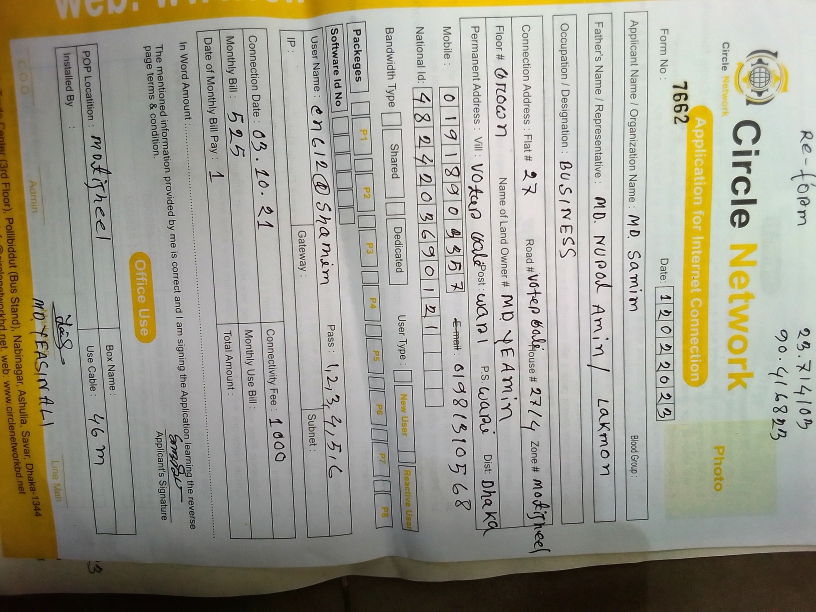 Re-form
23.714103
90.416823
Circle Network
Circle Network
Application for Internet Connection
Photo
Form No :
7662
Date: 12022023
Applicant Name / Organization Name : MD. Samim
Blood Group :
Father's Name / Representative : MD. Nurol Amin / Lakmon
Occupation / Designation : BUSINESS
Connection Address : Flat # 27 Road # House # 27/4 Zone # motijheel
Floor # Grown Name of Land Owner # MD. YEAmin
Permanent Address : Vill : Post : wari P.S wari Dist: Dhaka
Mobile : 01918909357 Email: 01981310568
National Id: 4824203690121
Bandwidth Type : Shared Dedicated User Type : New User Reactive User
Packeges P1 P2 P3 P4 P5 P6 P7 P8
Software Id No
User Name : cnc12@Shamim Pass : 1,2,3,4,5,6
IP : Gateway : Subnet :
Connection Date : 03.10.21 Connectivity Fee : 1000
Monthly Bill : 525 Monthly Use Bill:
Date of Monthly Bill Pay : 1 Total Amount :
In Word Amount
The mentioned information provided by me is correct and I am signing the Application learning the reverse
page terms & condition.
Applicant's Signature
Office Use
POP Locatition : motijheel
Box Name :
Installed By :
Use Cable : 46m
MD YEASIN ALI
C.O.O
Admin
Line Man
Trade Center (3rd Floor), Pollibiddut (Bus Stand), Nabinagar, Ashulia, Savar, Dhaka-1344
circlenetworkbd.net, web: www.circlenetworkbd.net
web: w